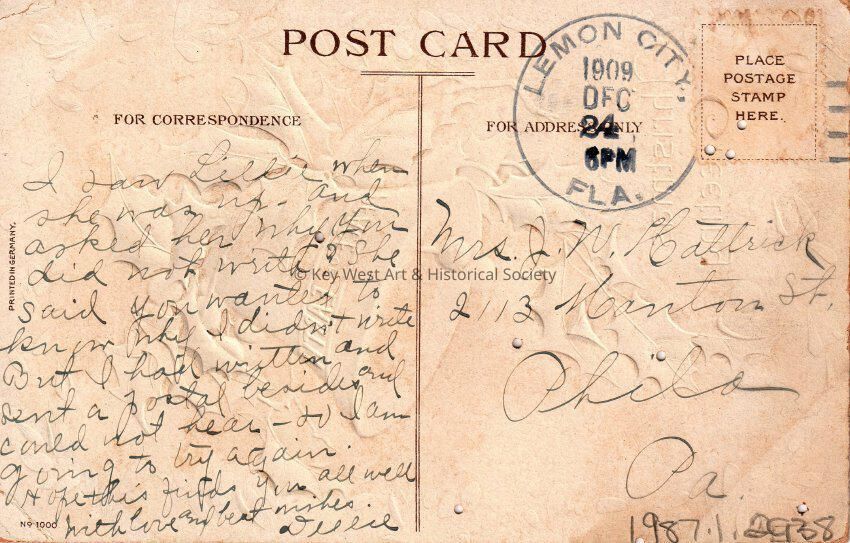 POST CARD
LEMON CITY,
1909
DEC
24
6PM
FLA.
PLACE
POSTAGE
STAMP
HERE.
FOR CORRESPONDENCE
FOR ADDRESS ONLY
I saw Lillie when
she was up - and
asked her why you
did not write? She
said you wanted to
know why I didn't write
But I had written and
sent a postal besides and
could not hear - so I am
going to try again.
Hope this finds you all well
With love and best wishes
Dellie
Mrs. J. W. Hattrick
2113 Manton St.
Phila
Pa.
PRINTED IN GERMANY.
Nº 1000
© Key West Art & Historical Society
1987.1.2938